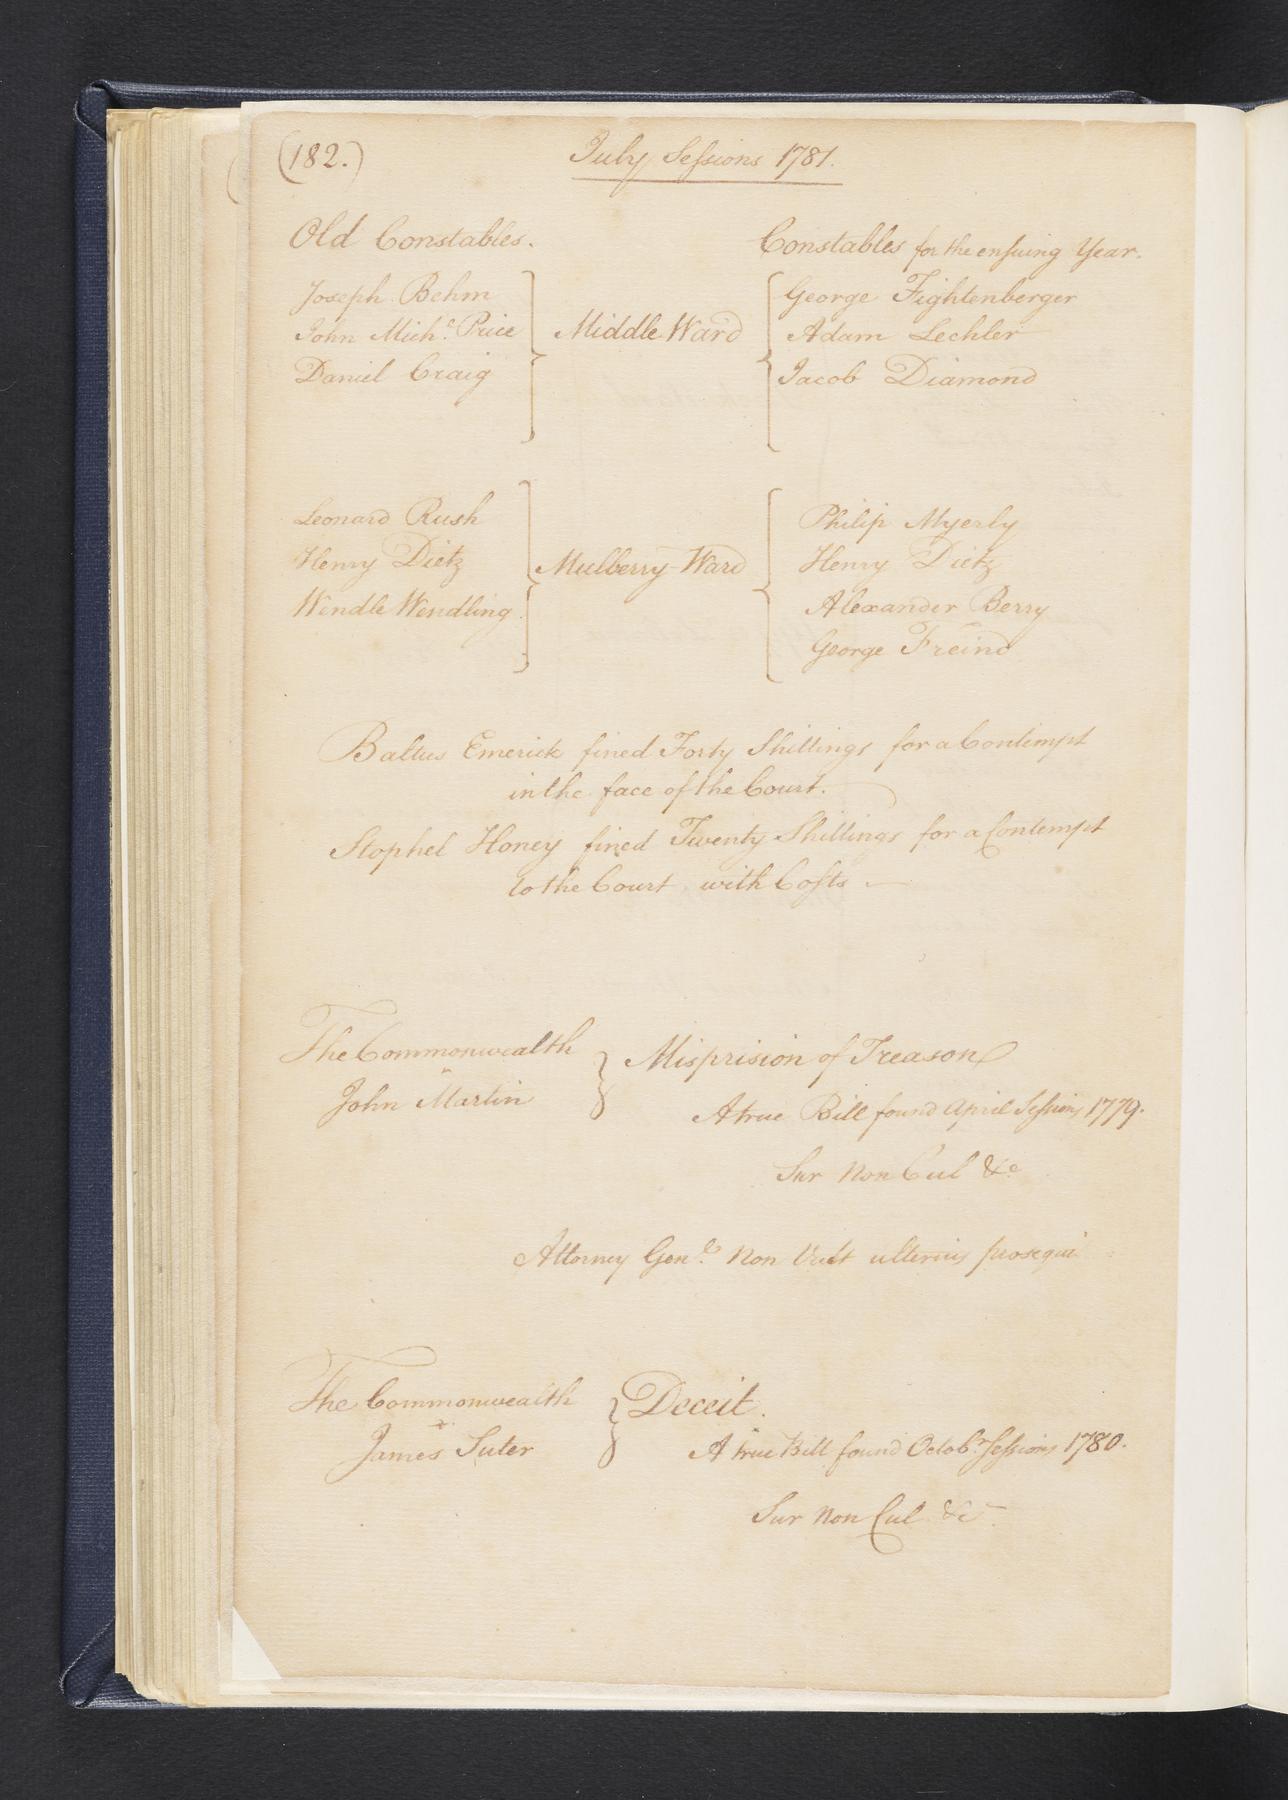 (182.)
July Sessions 1781.
Old Constables.
Constables for the ensuing Year.
Joseph Behm
John Michl. Price
Daniel Craig
Middle Ward
George Fightenberger
Adam Lechler
Jacob Diamond
Leonard Rush
Henry Dietz
Wendle Wendling
Mulberry Ward
Philip Myerly
Henry Dietz
Alexander Berry
George Freind
Baltus Emerick fined Forty Shillings for a Contempt
in the face of the Court.
Stophel Honey fined Twenty Shillings for a Contempt
to the Court with Costs
The Commonwealth
John Martin
Misprision of Treason
A true Bill found April Sessions 1779.
Sur Non Cul &c
Attorney Genl. Non Vult ulterius prosequi
The Commonwealth
James Suter
Deceit.
A true Bill found Octobr. Sessions 1780.
Sur Non Cul &c